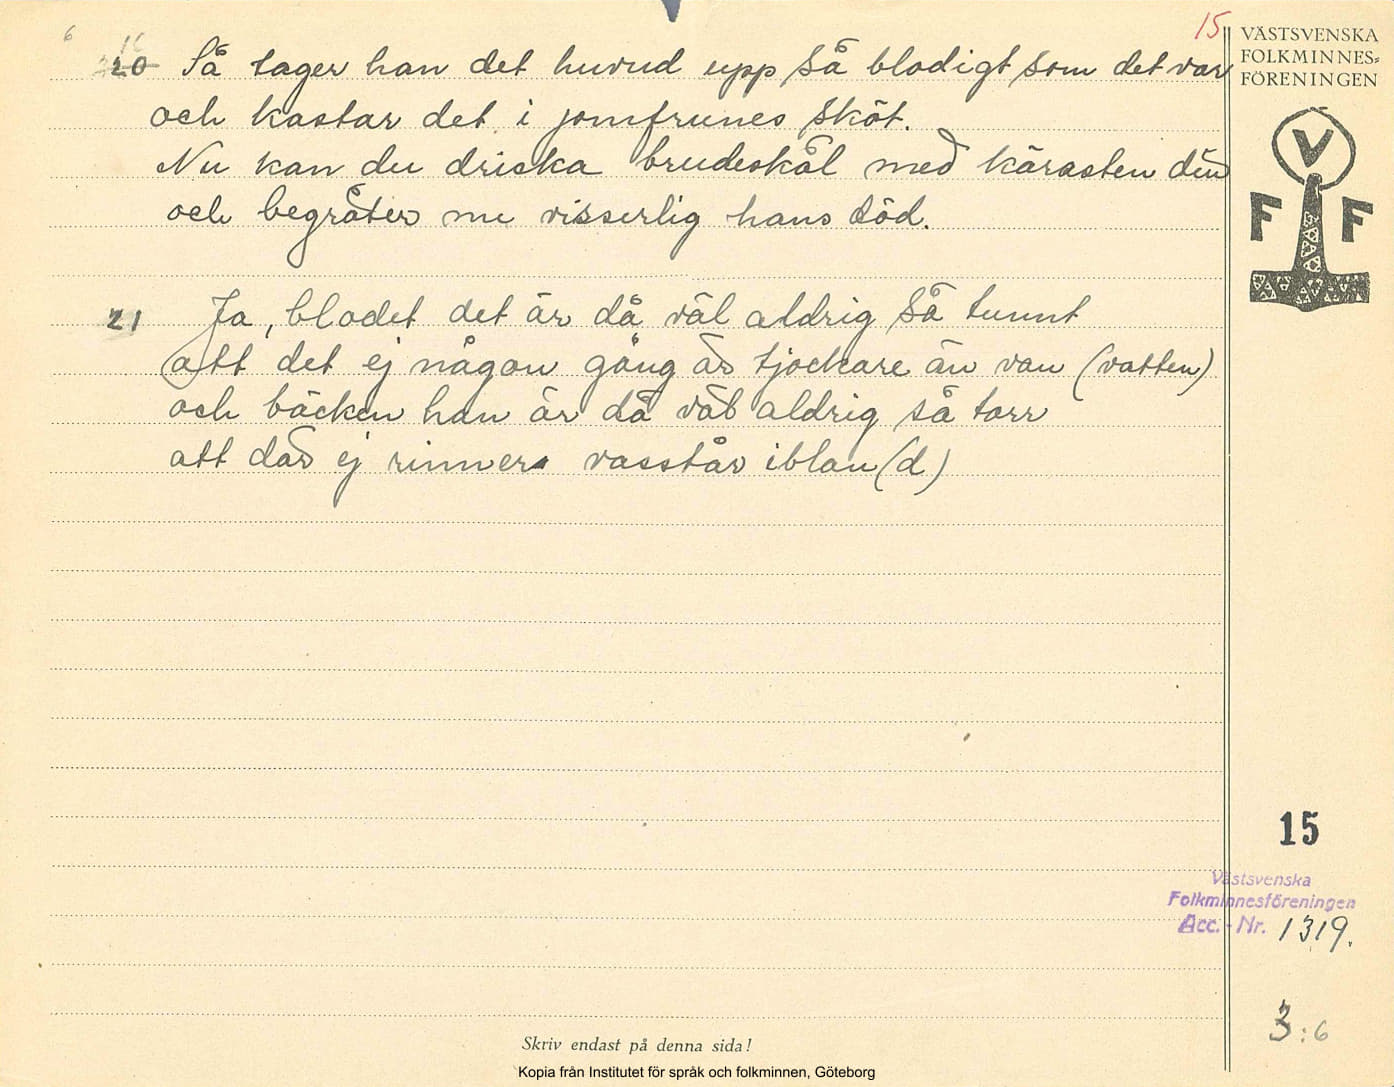 6
16
15
20 Så tager han det huvud upp så blodigt som det var
och kastar det i jomfrunes sköt.
Nu kan du dricka brudeskål med kärasten din
och begråter nu visserlig hans död.
21 Ja, blodet det är då väl aldrig så tunnt
att det ej någon gång är tjockare än van (vatten)
och bäcken han är då väl aldrig så torr
att där ej rinner vasstår iblan(d)
VÄSTSVENSKA
FOLKMINNES=
FÖRENINGEN
V
F F
15
Västsvenska
Folkminnesföreningen
Acc.-Nr. 1319.
3:6
Skriv endast på denna sida!
Kopia från Institutet för språk och folkminnen, Göteborg